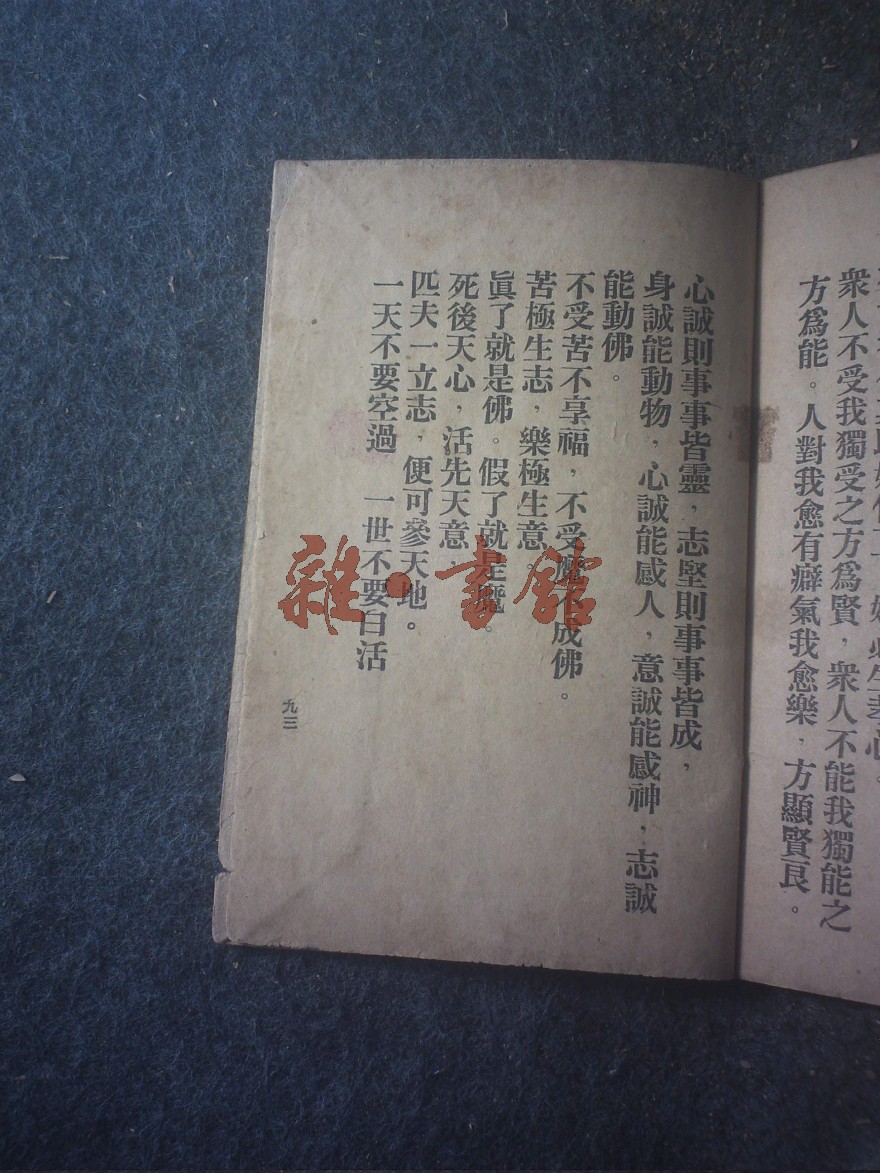 衆人不受我獨受之方爲賢，衆人不能我獨能之
方爲能。人對我愈有癖氣我愈樂，方顯賢良。
心誠則事事皆靈，志堅則事事皆成，
身誠能動物，心誠能感人，意誠能感神，志誠
能動佛。
不受苦不享福，不受魔不成佛。
苦極生志，樂極生意。
眞了就是佛。假了就是魔。
死後天心，活先天意
匹夫一立志，便可參天地。
一天不要空過　一世不要白活
九三
雜·書館